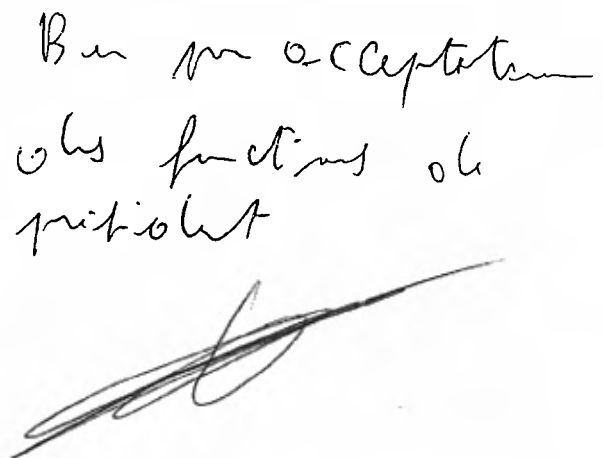 Bon pour acceptation
des fonctions de
président